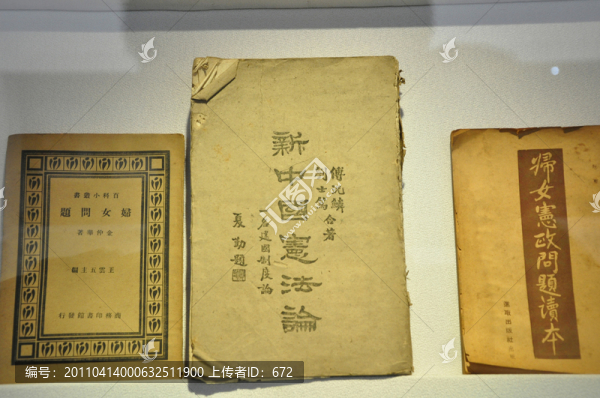 百科小叢書
婦女問題
金仲華著
王雲五主編
商務印書館發行
新中國憲法論
合著
名建國制度論
夏勤題
婦女憲政問題讀本
編号：20110414000632511900 上传者ID：672